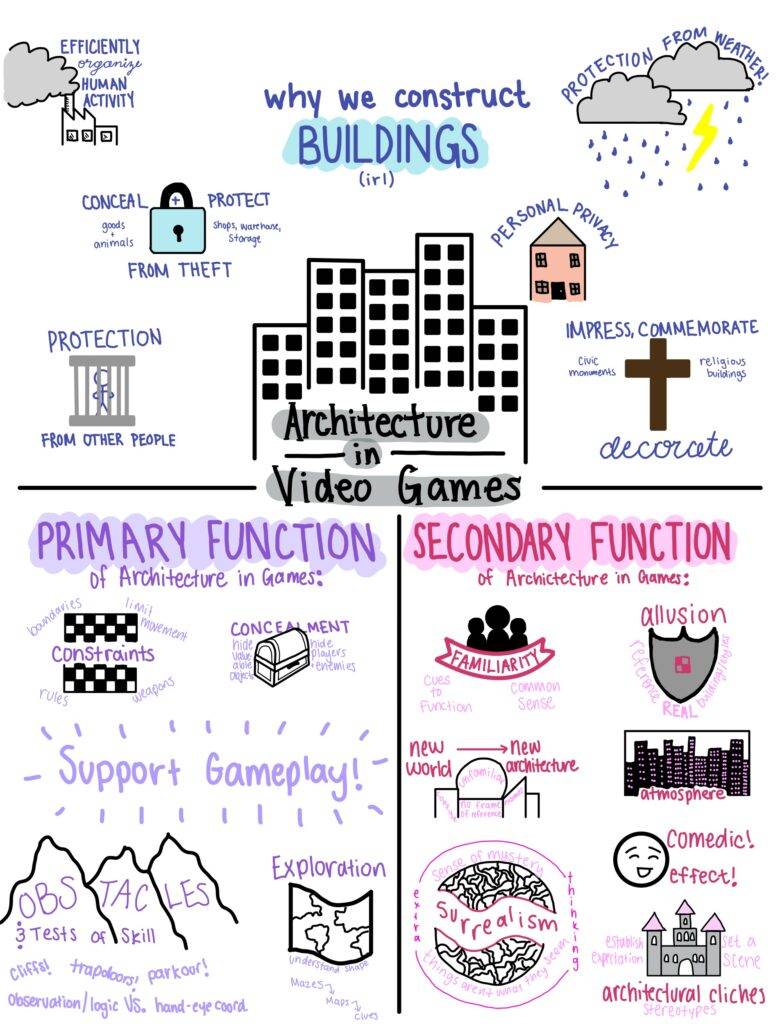 EFFICIENTLY
organize
HUMAN
ACTIVITY
why we construct
BUILDINGS
(irl)
PROTECTION FROM WEATHER!
CONCEAL + PROTECT
goods
+
animals
shops, warehouse,
storage
FROM THEFT
PERSONAL PRIVACY
PROTECTION
FROM OTHER PEOPLE
IMPRESS, COMMEMORATE
civic
monuments
religious
buildings
decorate
Architecture
in
Video Games
PRIMARY FUNCTION
of Architecture in Games:
boundaries
limit
movement
constraints
rules
weapons
CONCEALMENT
hide
valu-
able
objects
hide
players
+enemies
Support Gameplay!
OBSTACLES
& Tests of Skill
cliffs! trapdoors! parkour!
observation/logic VS. hand-eye coord.
Exploration
understand shape
Mazes
Maps
cives
SECONDARY FUNCTION
of Archictecture in Games:
FAMILIARITY
Cues
to
Function
Common
Sense
allusion
reference
REAL
buildings/
new
world
new
architecture
unfamiliar
no frame
of reference
atmosphere
Comedic!
effect!
sense of mystery
extra
thinking
surrealism
things aren't what they seem
establish
expectation
set a
scene
architectural cliches
stereotypes